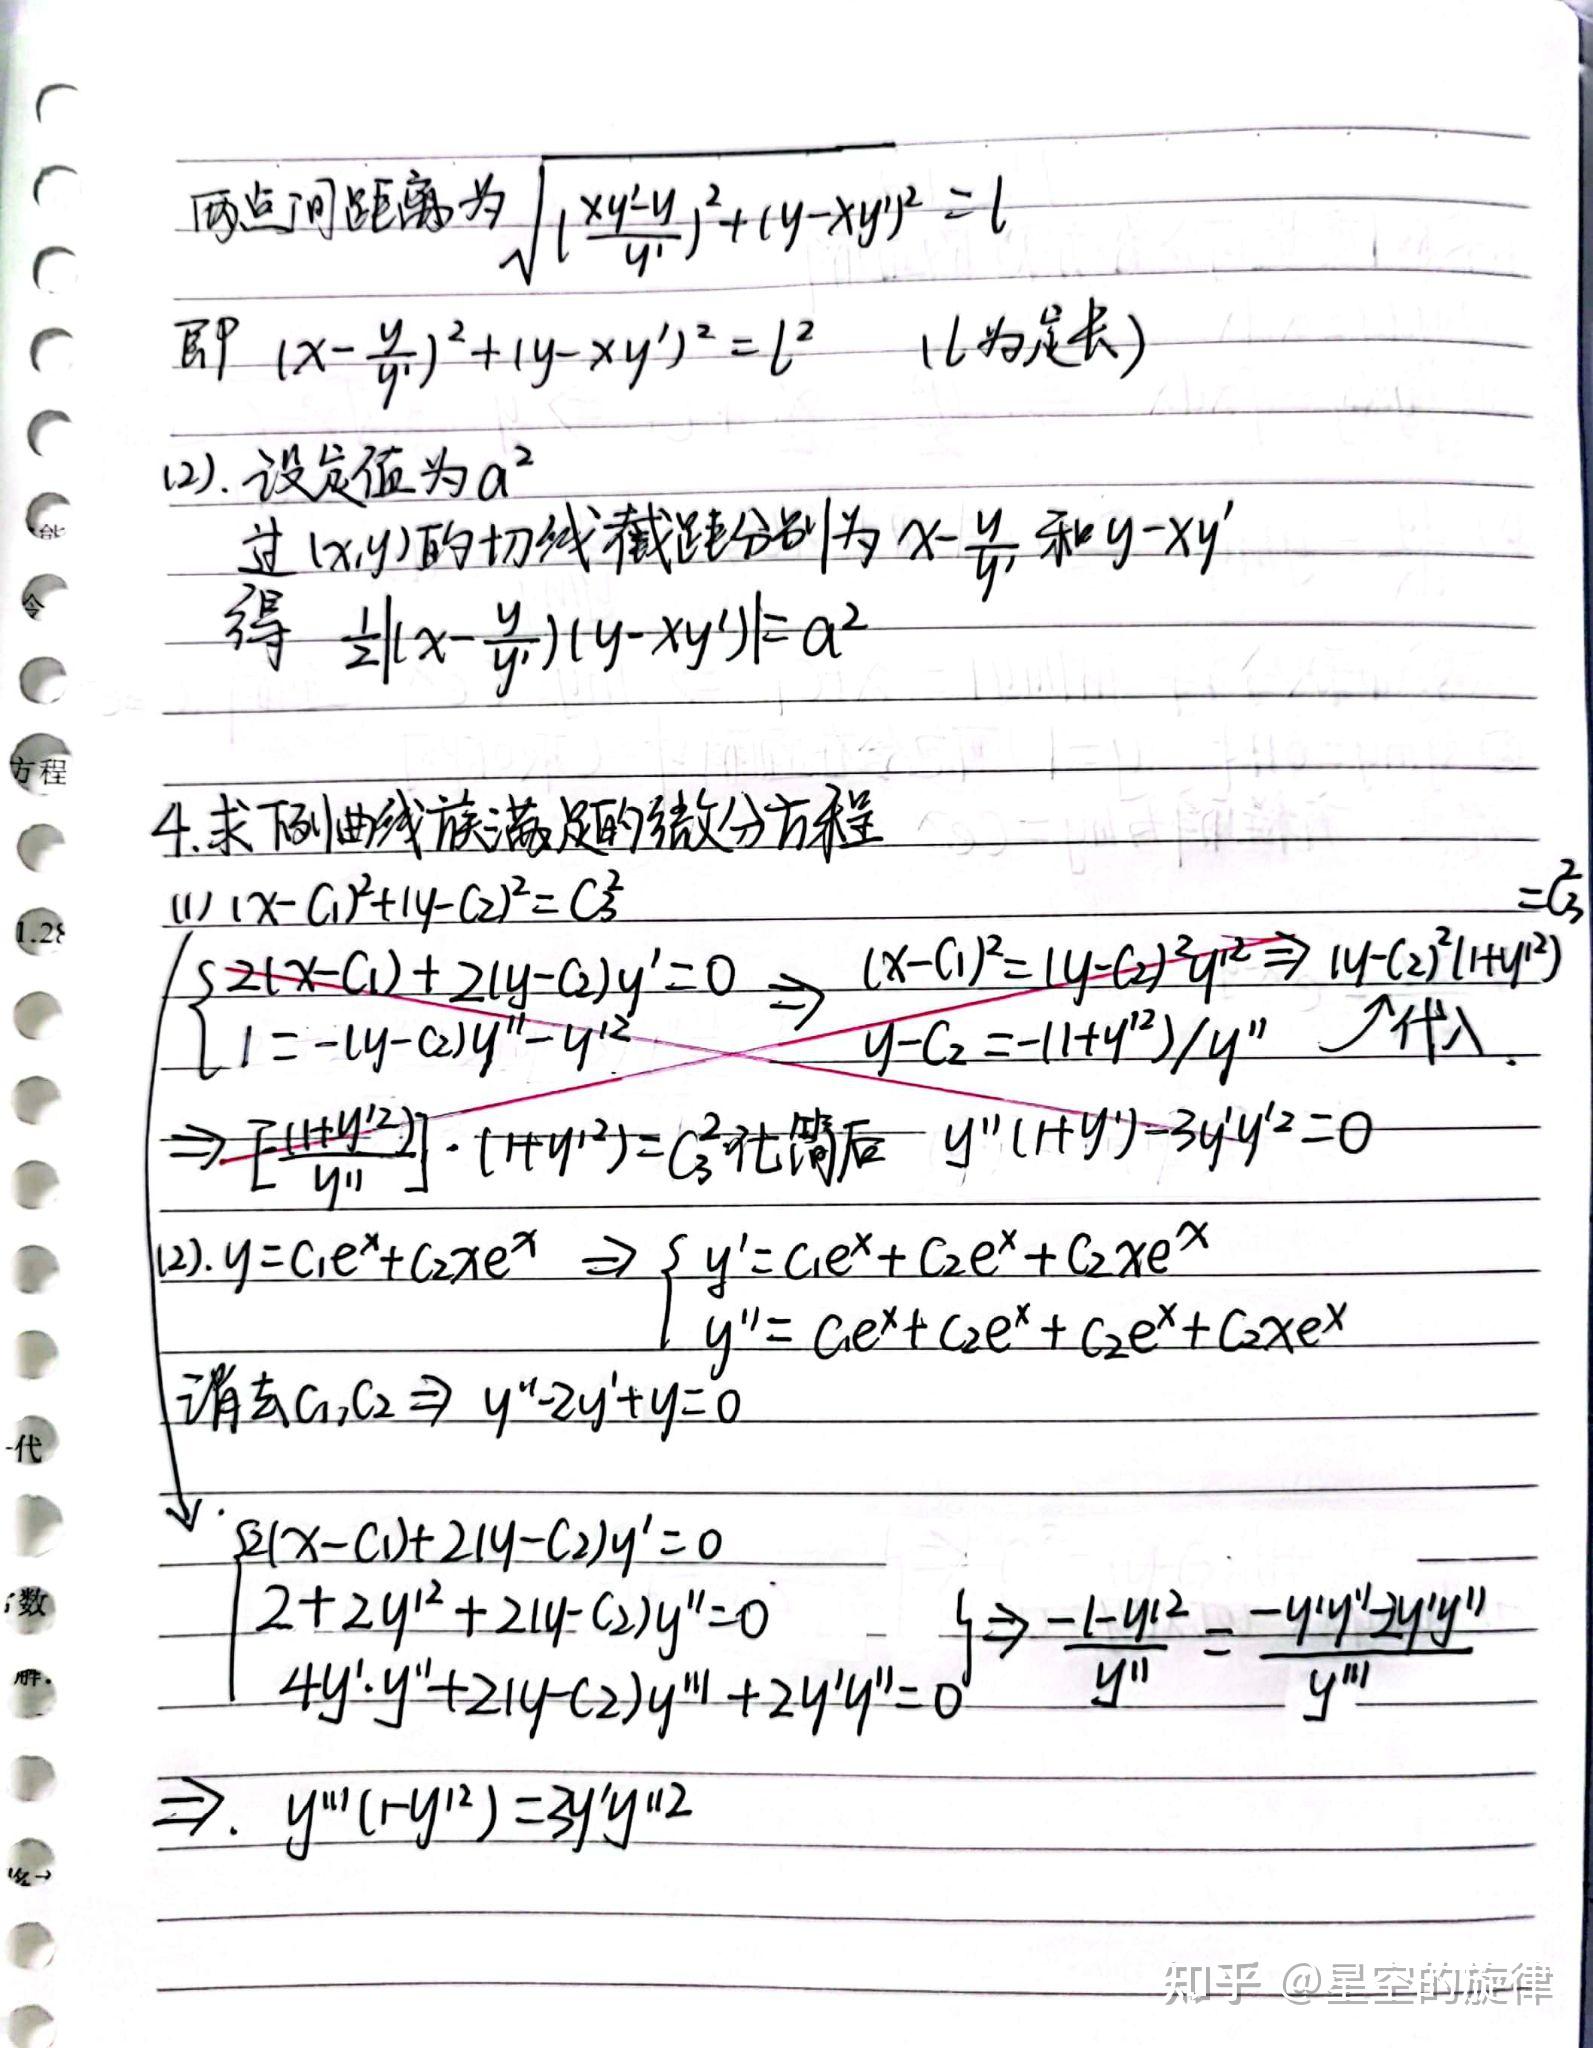 两点间距离为 √((xy'-y)/y')²+(y-xy')² = l
即 (x-y/y')²+(y-xy')²=l² (l为定长)
(2). 设定值为a²
过(x,y)的切线截距分别为 x-y/y' 和 y-xy'
得 1/2|(x-y/y')(y-xy')|=a²
4.求下列曲线族满足的微分方程
(1) (x-C₁)²+(y-C₂)²=C₃²
{2(x-C₁)+2(y-C₂)y'=0 ⇒ (x-C₁)²=(y-C₂)²y'² ⇒ (y-C₂)²(1+y'²) =C₃²
1=-(y-C₂)y''-y'² y-C₂=-(1+y'²)/y'' ↗代入.
⇒ [(1+y'²)/y'']·(1+y'²)=C₃² 化简后 y''(1+y')-3y'y'²=0
(2). y=C₁eˣ+C₂xeˣ ⇒ { y'=C₁eˣ+C₂eˣ+C₂xeˣ
y''=C₁eˣ+C₂eˣ+C₂eˣ+C₂xeˣ
消去C₁,C₂ ⇒ y''-2y'+y=0
{2(x-C₁)+2(y-C₂)y'=0
2+2y'²+2(y-C₂)y''=0
4y'·y''+2(y-C₂)y'''+2y'y''=0 } ⇒ (-1-y'²)/y'' = (-y'y''-2y'y'')/y'''
⇒. y'''(1-y'²)=3y'y''2
能
令
方程
1.28
-代
数
解.
知乎 @星空的旋律